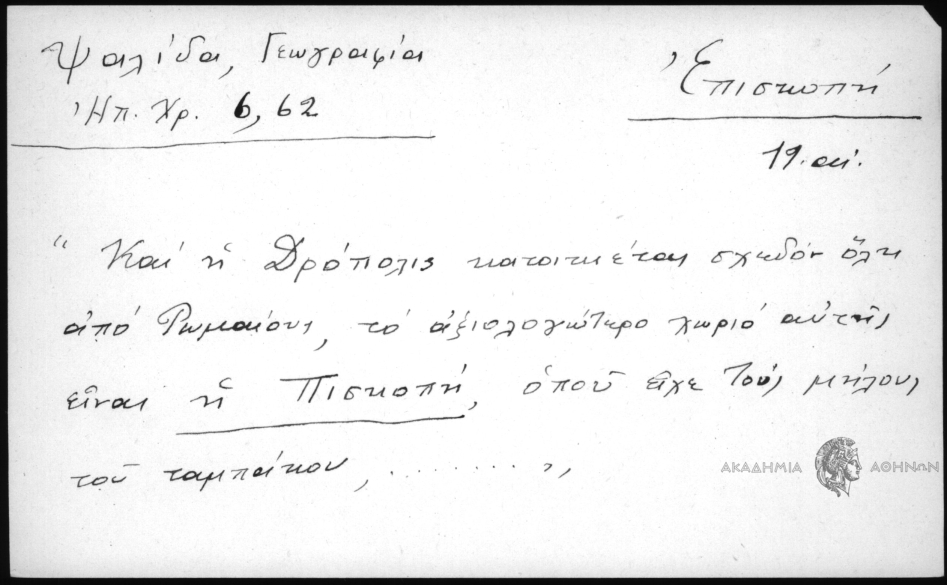 Ψαλίδα, Γεωγραφία
Ἠπ. Χρ. 6, 62
Ἐπισκοπή
19. αἰ.
“ Καί ἡ Δρόπολις κατοικιέται σχεδόν ὅλη
ἀπό Ρωμαίους, τό ἀξιολογώτερο χωριό αὐτῆς
εἶναι ἡ Πισκοπή, ὁποῦ εἶχε τούς μύλους
τοῦ ταμπάκου, ........ ,,
ΑΚΑΔΗΜΙΑ ΑΘΗΝΩΝ